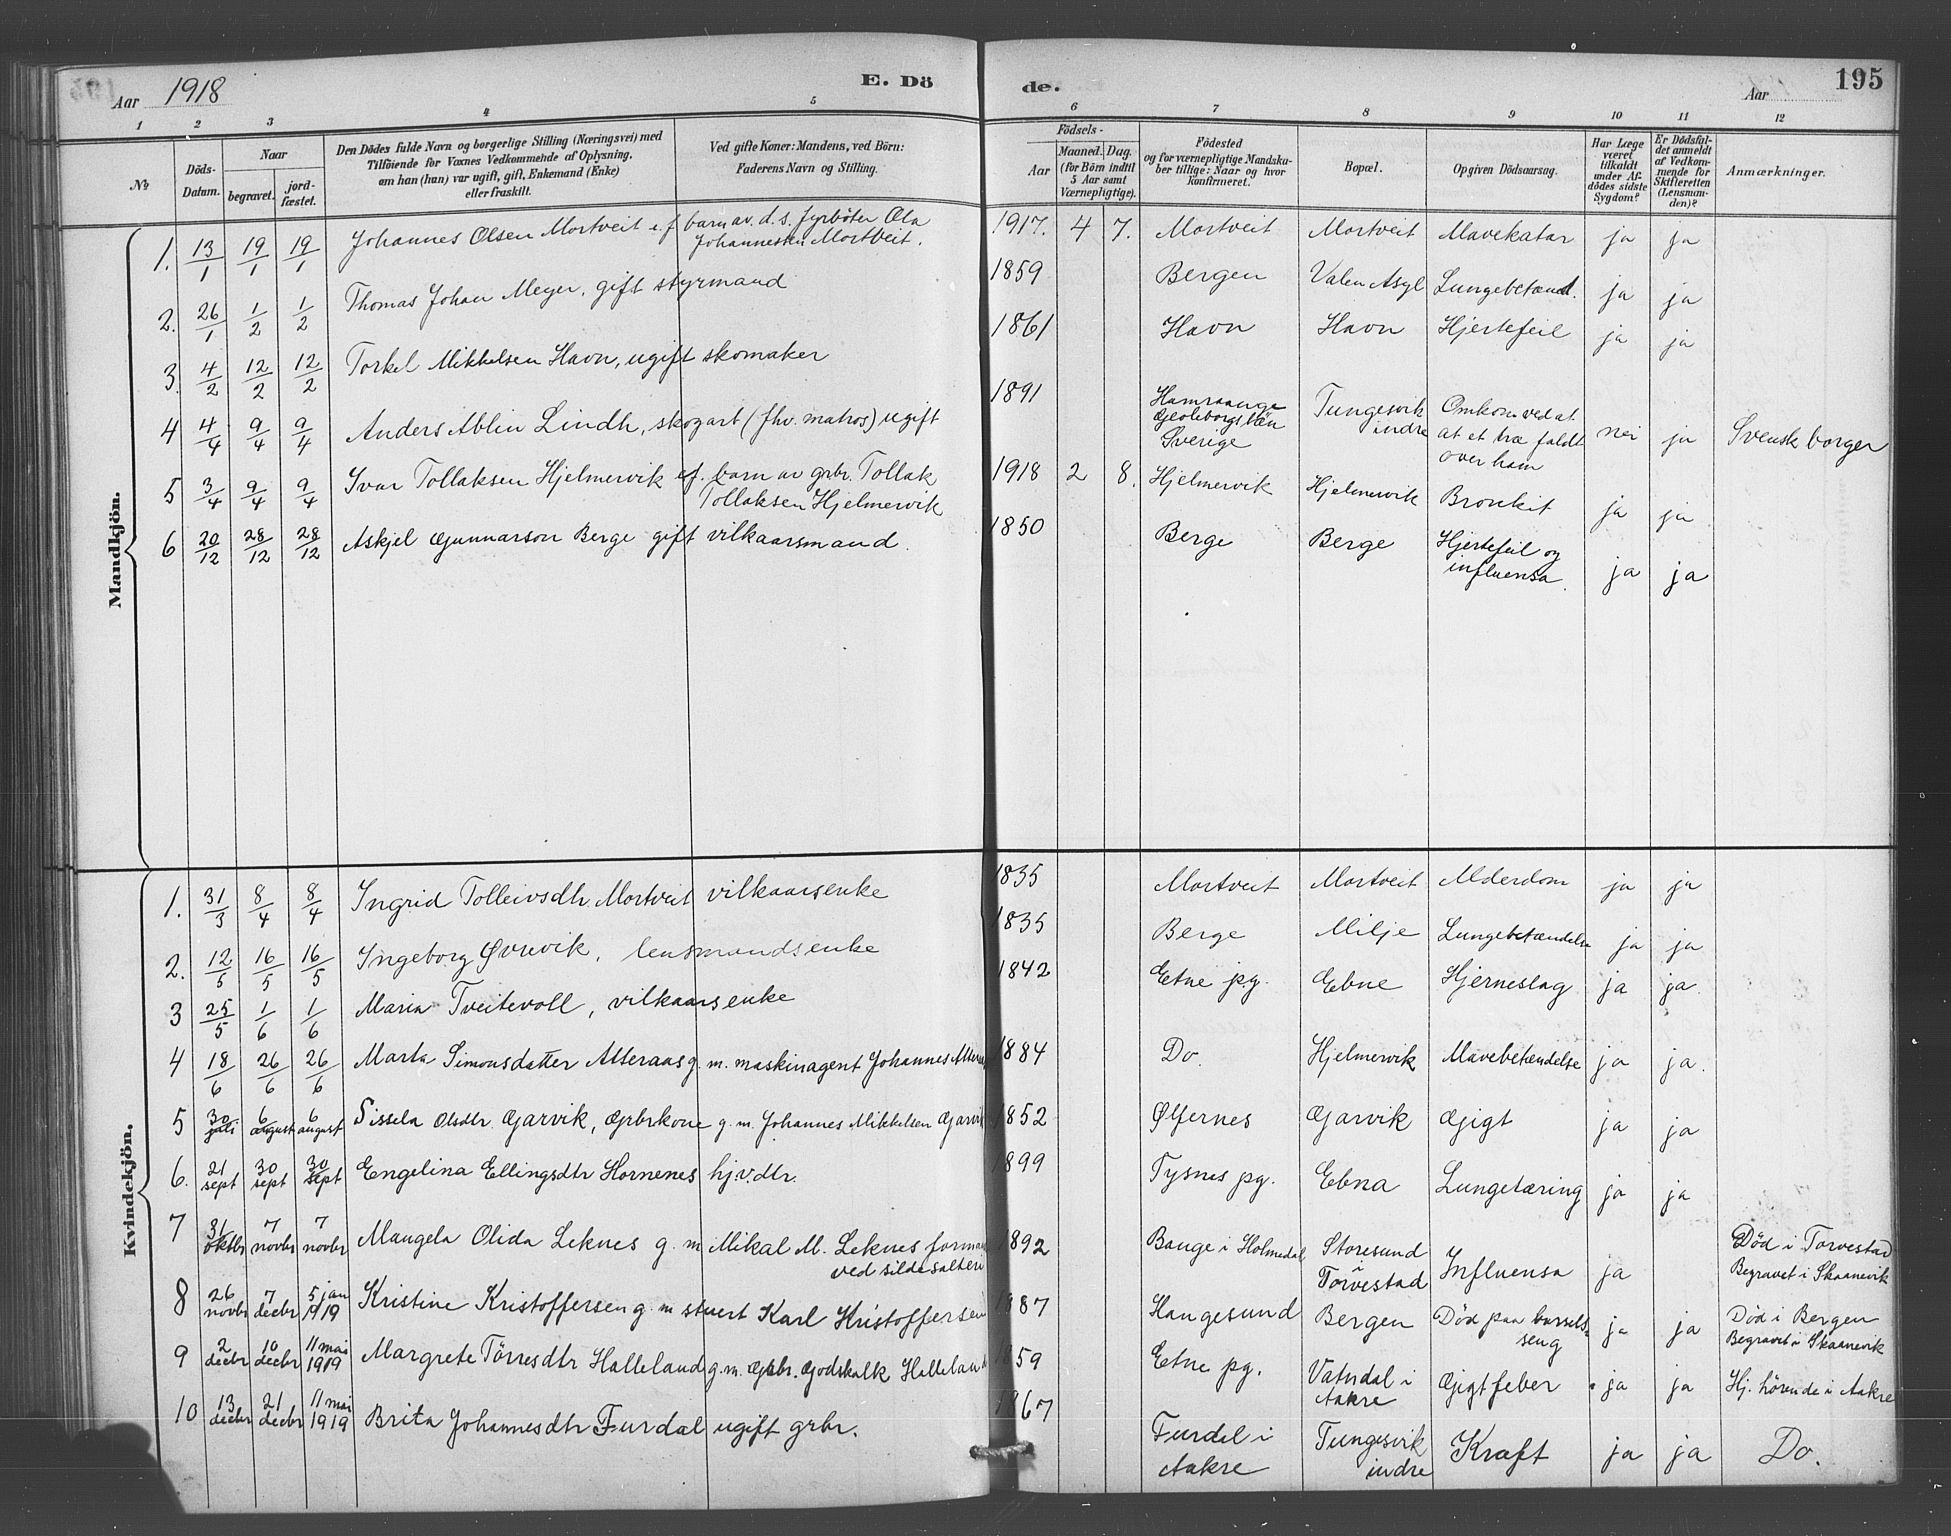 Aar 1918 E. Dö de. Aar 195
1 2 3 4 5 6 7 8 9 10 11 12
No
Döds-Datum.
Naar
begravet. jord-fæstet.
Den Dödes fulde Navn og borgerlige Stilling (Næringsvei) med
Tilföiende for Voxnes Vedkommende af Oplysning,
om han (hun) var ugift, gift, Enkemand (Enke)
eller fraskilt.
Ved gifte Koner: Mandens, ved Börn:
Faderens Navn og Stilling.
Födsels-
Aar Maaned. Dag.
(for Börn indtil
5 Aar samt
Værnepligtige).
Födested
og for værnepligtige Mandska-
ber tillige: Naar og hvor
konfirmeret.
Bopæl.
Opgiven Dödsaarsag.
Har Læge
været
tilkaldt
under Af-
dödes sidste
Sygdom?
Er Dödsfal-
det anmeldt
af Vedkom-
mende for
Skifteretten
(Lensman-
den)?
Anmærkninger.
Mandkjön.
1. 13/1 19/1 19/1 Johannes Olsen Mortveit e.f. barn av d.s. fyrböter Ola
Johannessen Mortveit. 1917. 4 7. Mortveit Mortveit Mavekatar ja ja
2. 26/1 1/2 1/2 Thomas Johan Meyer, gift styrmand 1859 Bergen Valen Asyl Lungebetænd. ja ja
3. 4/2 12/2 12/2 Torkel Mikkelsen Havn, ugift skomaker 1861 Havn Havn Hjertefeil ja ja
4 4/4 9/4 9/4 Anders Ablin Lindh, skogart (fhv. matros) ugift 1891 Hamraange
Sverige Tungesvik
indre Omkom ved at
at et træ faldt
over ham nei ja Svensk borger
5 3/4 9/4 9/4 Ivar Tollaksen Hjelmervik e.f. barn av grbr. Tollak
Tollaksen Hjelmervik 1918 2 8. Hjelmervik Hjelmervik Bronkit ja ja
6 20/12 28/12 28/12 Askjel Gunnarson Berge gift vilkaarsmand. 1850 Berge Berge Hjertefeil og
influensa. ja ja
Kvindekjön.
1. 31/3 8/4 8/4 Ingrid Tolleivsdtr. Mortveit vilkaarsenke 1835 Mortveit Mortveit Alderdom ja ja
2. 12/5 16/5 16/5 Ingeborg Øvrevik, lensmandsenke 1835 Berge Milje Lungebetændelse ja ja
3 25/5 1/6 1/6 Maria Tveitevoll, vilkaarsenke 1842 Etne pg. Ebne Hjerneslag ja ja.
4 18/6 26/6 26/6 Marta Simonsdatter Atteraas g. m. maskinagent Johannes 1884 Do. Hjelmervik Mavebetændelse ja ja.
5 30 juli 6 august 6 august Sissela Olsdtr. Garvik, Grbrkone g. m. Johannes Mikkelsen Garvik 1852 Ølfernes Garvik Gigt ja ja
6. 21 sept 30 sept 30 sept Engelina Ellingsdtr Hornenes hj.v.dtr. 1899 Tysnes pg. Ebna Lungetæring ja ja
7 31 oktbr 7 novbr 7 novbr Maugela Olida Leknes g. m. Mikal M. Leknes
ved sildesalteri 1892 Bauge i Holmedal Storesund
i
Torvestad Influensa ja Død i Torvestad
Begravet i Skaanevik
8 26 novbr 7 decbr 5 jan 1919 Kristine Kristoffersen g. m stuert Karl Kristoffersen 1887 Haugesund Bergen Död paa barsels-
seng ja ja Död i Bergen
Begravet i Skaanevik
9 2 decbr 10 decbr 11 mai 1919 Margrete Törresdtr Halleland g. m. Grbr. Godskalk Halleland 1859 Etne pg. Vatndal i
Aakre Gigtfeber ja ja Hj. hörende i Aakre
10 13 decbr 21 decbr 11 mai 1919 Brita Johannesdtr Furdal ugift grbr. 1867 Furdal i
Aakre Tungesvik
indre Kræft ja ja Do.